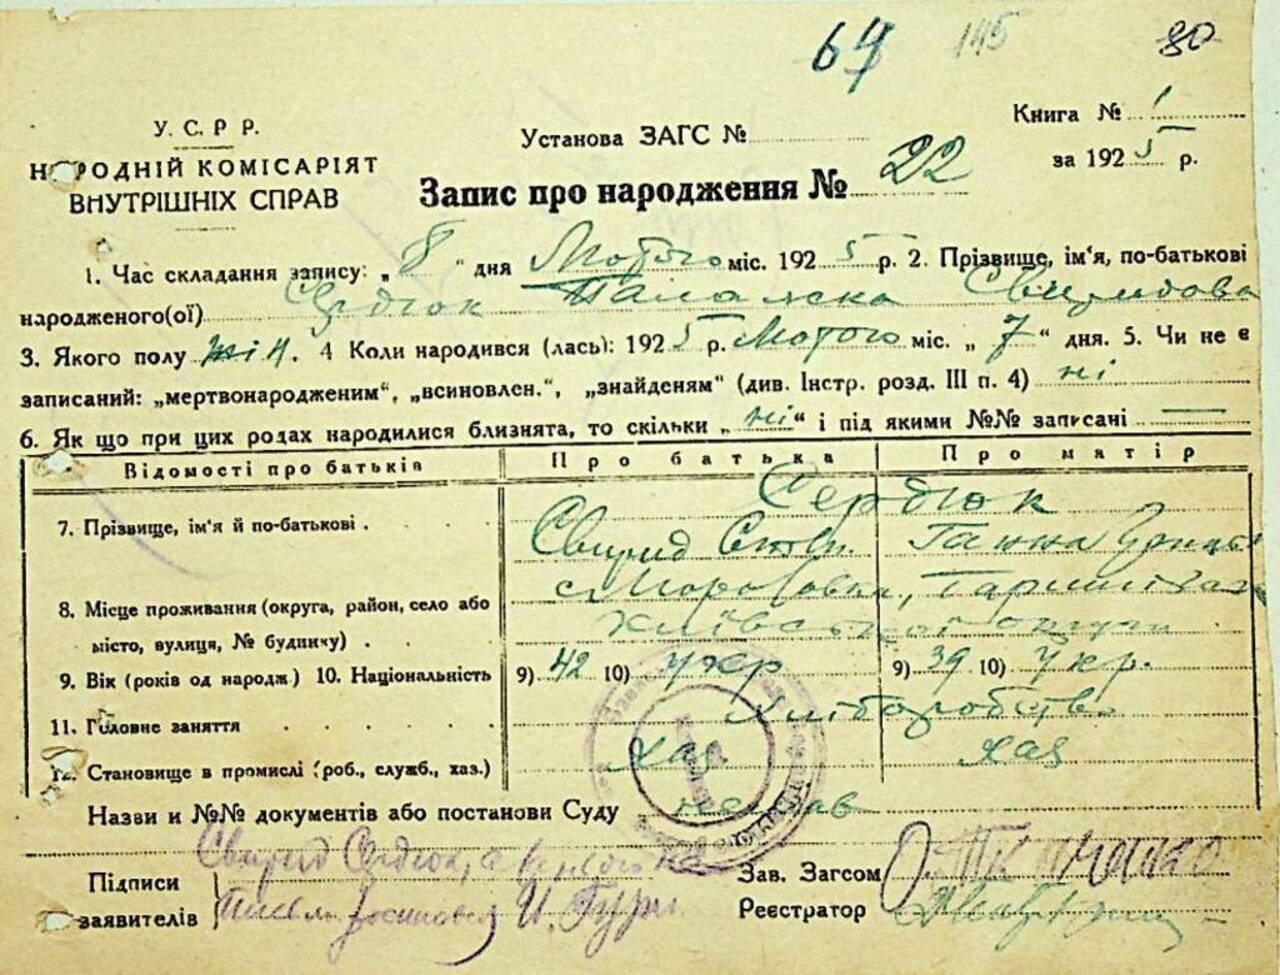 64 145 80
У. С. Р Р.
НАРОДНІЙ КОМІСАРІЯТ
ВНУТРІШНІХ СПРАВ
Установа ЗАГС №
Книга № 1
за 1925 р.
Запис про народження № 22
1. Час складання запису: „8“ дня Лютого міс. 1925 р. 2. Прізвище, ім'я, по-батькові
народженого(ої) Сердюк Палажка Свиридова
3. Якого полу жін. 4 Коли народився (лась): 1925 р. Лютого міс. „7“ дня. 5. Чи не є
записаний: „мертвонародженим“, „всиновлен.“, „знайденям“ (див. Інстр. розд. III п. 4) ні
6. Як що при цих родах народилися близнята, то скільки „ні“ і під якими №№ записачі —
Відомості про батьків Про батька Про матір
7. Прізвище, ім'я й по-батькові . Сердюк
Свирид Ганна
8. Місце проживання (округа, район, село або
місто, вулиця, № будинку) . Київської округи
9. Вік (років од народж) 10. Національність 9) 42 10) укр 9) 39 10) Укр.
11. Головне заняття Хліборобство
12. Становище в промислі (роб., служб., хаз.) хаз хаз
Назви и №№ документів або постанови Суду
Підписи
заявителів
Свирид Сердюк, а
Зав. Загсом
Реєстратор